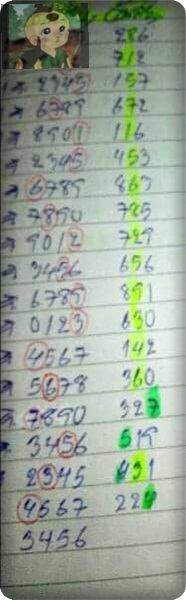 286
712
→ 2345 157
→ 6789 672
→ 8901 116
→ 2345 453
→ 6789 863
→ 7890 785
→ 9012 729
→ 3456 656
→ 6789 891
→ 0123 630
→ 4567 142
→ 5678 360
→ 7890 327
→ 3456 519
→ 2345 431
4567 224
3456